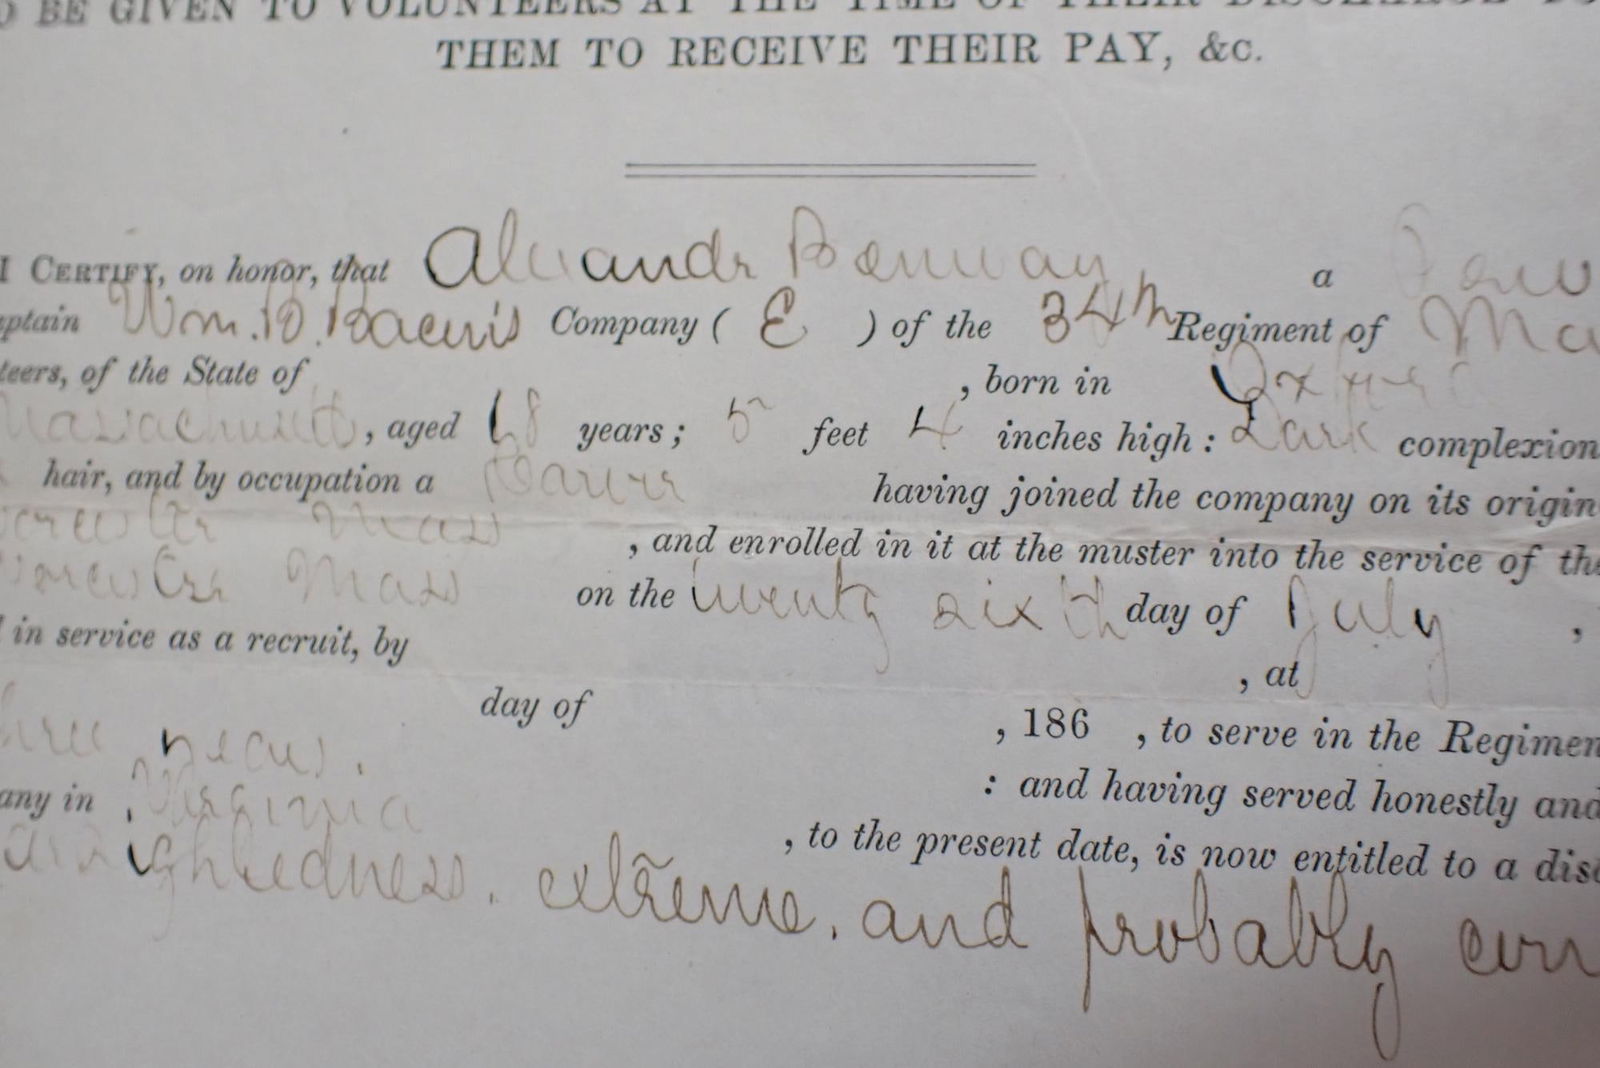 BE GIVEN TO VOLUNTEERS AT THE TIME OF THEIR DISCHARGE TO
THEM TO RECEIVE THEIR PAY, &c.
I CERTIFY, on honor, that Alexandr a
ptain Wm. B. Company ( E ) of the 34th Regiment of Ma
teers, of the State of , born in Oxford
Massachusetts, aged 18 years; 5 feet 4 inches high: Dark complexion
hair, and by occupation a having joined the company on its origin
Mass , and enrolled in it at the muster into the service of the
Worcester Mass on the twenty sixth day of July ,
in service as a recruit, by , at
day of , 186 , to serve in the Regimen
three years. : and having served honestly and
any in Virginia , to the present date, is now entitled to a disc
sightedness. extreme. and probably